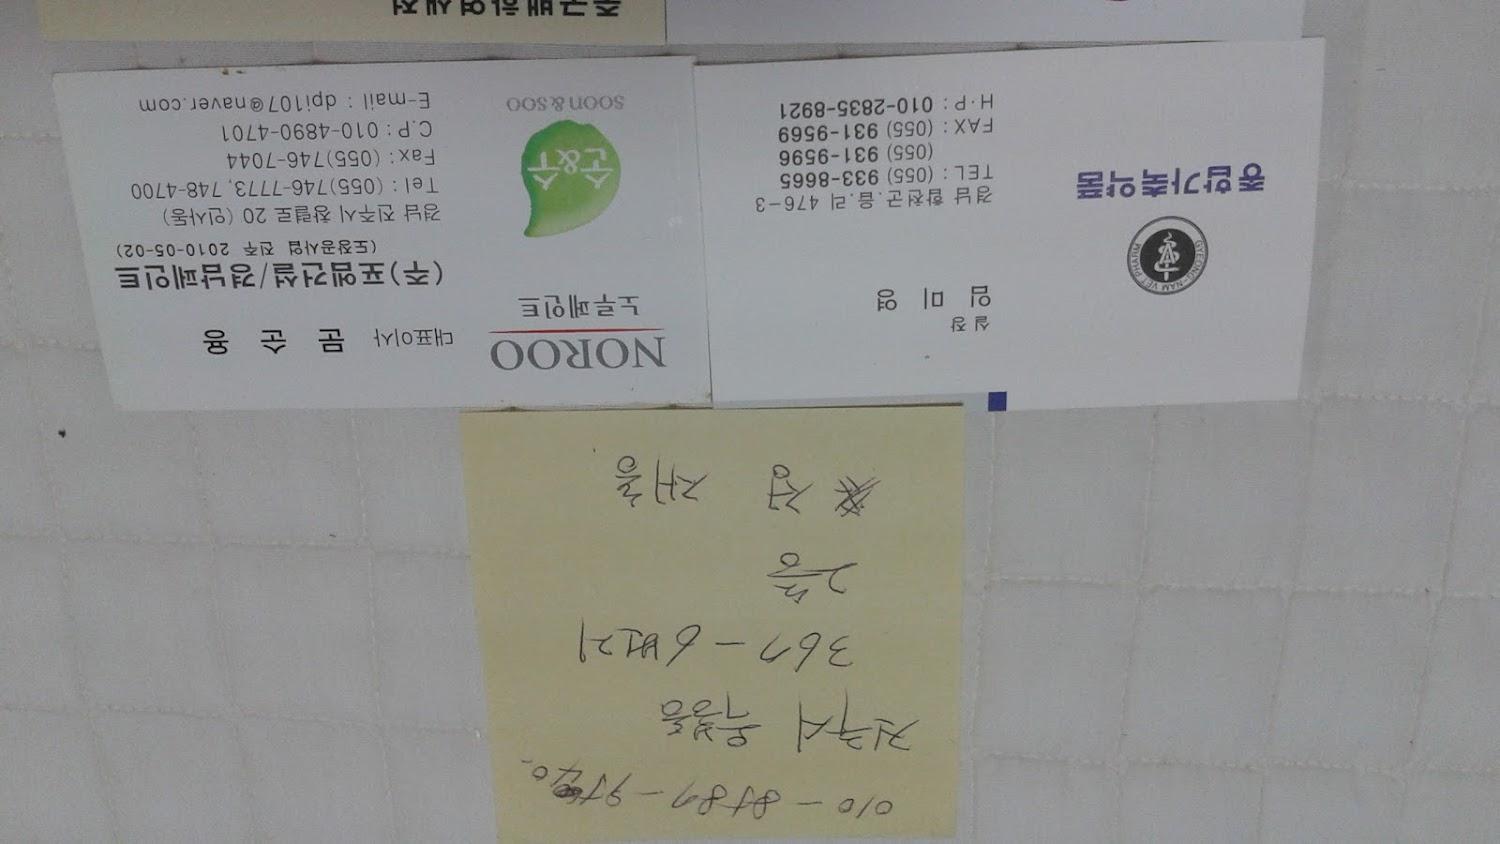 중국백합영생전
NOROO
노루페인트
순&수
SOON&SOO
대표이사 문 순 용
(주)포엠건설/경남페인트
(도장공사업 진주 2010-05-02)
경남 진주시 창렬로 20 (인사동)
Tel : (055)746-7773, 748-4700
Fax : (055)746-7044
C.P : 010-4890-4701
E-mail : dpi107@naver.com
GYEONG-NAM VET PHARM
종합가축약품
실장
임 미 영
경남 합천군.읍.리 476-3
TEL : (055) 933-8665
(055) 931-9596
FAX : (055) 931-9569
H·P : 010-2835-8921
010 - 8787 -
진주시
367-6번지
2층
정 재홍